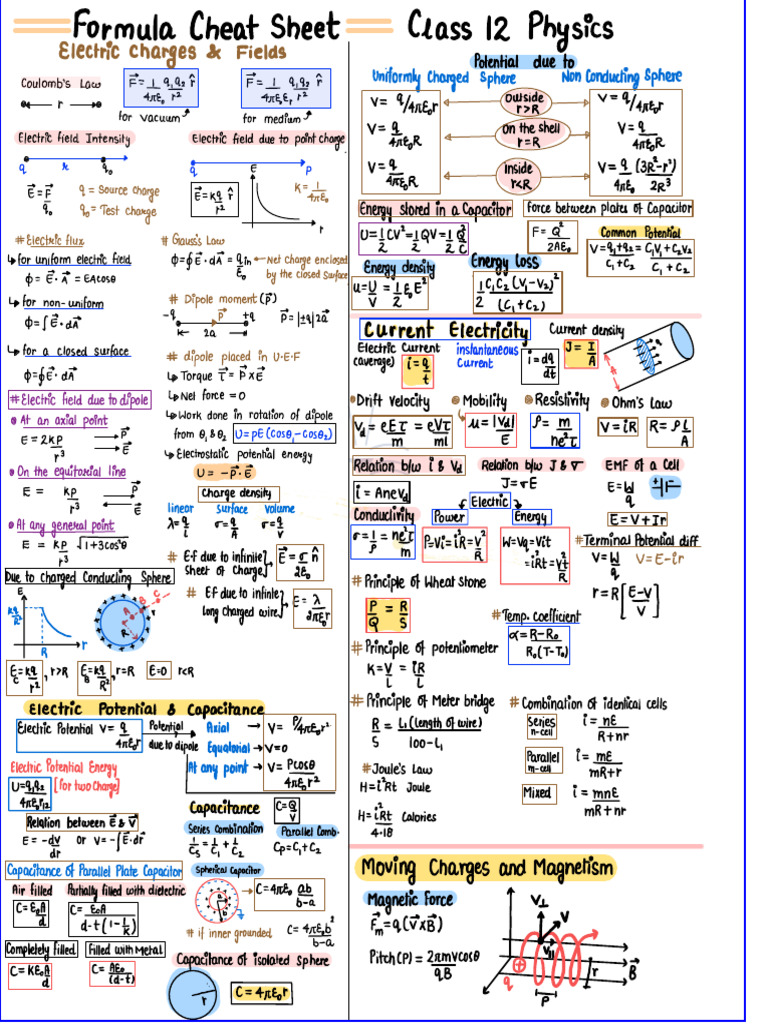 Formula Cheat Sheet
Class 12 Physics
Electric Charges & Fields
Coulomb's Law
r
F⃗ = 1/4πε₀ q₁q₂/r² r̂
for vacuum
F⃗ = 1/4πε₀εᵣ q₁q₂/r² r̂
for medium
Electric field Intensity
q r q₀
E⃗ = F⃗/q₀
q = Source charge
q₀ = Test charge
Electric field due to point charge
q P
E⃗ = kq/r² r̂
E
r
K = 1/4πε₀
# Electric flux
for uniform electric field
ϕ = E⃗·A⃗ = EAcosθ
for non-uniform
ϕ = ∫E⃗·dA⃗
for a closed surface
ϕ = ∮E⃗·dA⃗
# Gauss's Law
ϕ = ∮E⃗·dA⃗ = qin/ε₀
Net charge enclosed
by the closed surface
# Dipole moment (p⃗)
-q p⃗ +q
2a
p⃗ = |±q|2a⃗
# dipole placed in U.E.F
Torque τ⃗ = p⃗ × E⃗
Net force = 0
Work done in rotation of dipole
from θ₁ & θ₂ U = pE (Cosθ₁ - Cosθ₂)
Electrostatic potential energy
U = -p⃗·E⃗
# Electric field due to dipole
At an axial point
E = 2kp/r³
P⃗
E⃗
On the equitorial line
E = kp/r³
P⃗
E⃗
At any general point
E = kp/r³ √1+3cos²θ
Charge density
linear surface volume
λ = q/L σ = q/A σ = q/V
# Ef due to infinite
sheet of Charge
E⃗ = σ/2ε₀ n̂
# Ef due to infinite
long Charged wire
E = λ/2πε₀r
Due to charged Conducting Sphere
E
kq/R²
R r
A B C
R
E_C = kq/r², r>R E_B = kq/R², r=R E=0 r<R
Electric Potential & Capacitance
Electric Potential V = q/4πε₀r
Potential
due to dipole
Axial → V = P/4πε₀r²
Equatorial → V=0
At any point → V = Pcosθ/4πε₀r²
Electric Potential Energy
U = q₁q₂/4πε₀r₁₂ [for two Charge]
Relation between E⃗ & V⃗
E = -dV/dr or V = -∫E⃗·dr⃗
Capacitance
C = Q/V
Series Combination
1/Cs = 1/C₁ + 1/C₂
Parallel Comb.
Cp = C₁ + C₂
Capacitance of Parallel Plate Capacitor
Air filled
C = ε₀A/d
Partially filled with dielectric
C = ε₀A/d-t(1-1/k)
Completely filled
C = Kε₀A/d
Filled with Metal
C = Aε₀/(d-t)
Spherical Capacitor
a b
C = 4πε₀ ab/b-a
# if inner grounded
C = 4πε₀b²/b-a
Capacitance of isolated Sphere
r
C = 4πε₀r
Potential due to
Uniformly Charged Sphere
Non Conducting Sphere
V = q/4πε₀r
Outside
r>R
V = q/4πε₀r
V = q/4πε₀R
On the shell
r=R
V = q/4πε₀R
V = q/4πε₀R
Inside
r<R
V = q/4πε₀ (3R²-r²)/2R³
Energy stored in a Capacitor
U = 1/2 CV² = 1/2 QV = 1/2 Q²/C
Force between plates of Capacitor
F = Q²/2Aε₀
Common Potential
V = q₁+q₂/C₁+C₂ = C₁V₁+C₂V₂/C₁+C₂
Energy density
u = U/V = 1/2 ε₀E²
Energy loss
1/2 C₁C₂(V₁-V₂)²/(C₁+C₂)
Current Electricity
Electric Current
(average)
i = q/t
instantaneous
Current
i = dq/dt
Current density
J = I/A
A
Drift Velocity
Vd = eEτ/m = eVτ/ml
Mobility
μ = |Vd|/E
Resistivity
ρ = m/ne²τ
Ohm's Law
V = iR R = ρL/A
Relation b/w i & Vd
i = AneVd
Relation b/w J & σ
J = σE
EMF of a Cell
E = W/q
E = V + Ir
Conductivity
σ = 1/ρ = ne²τ/m
Electric
Power Energy
P = Vi = i²R = V²/R
W = Vq = Vit
= i²Rt = V²t/R
# Terminal Potential diff
V = W/q V = E-ir
r = R [E-V/V]
# Principle of Wheat Stone
P/Q = R/S
# Temp. coefficient
α = R-R₀/R₀(T-T₀)
# Principle of potentiometer
K = V/L = iR/L
# Principle of Meter bridge
R/S = L₁(length of wire)/100-L₁
# Combination of identical cells
Series
n-cell
i = nE/R+nr
Parallel
m-cell
i = mE/mR+r
Mixed
i = mnE/mR+nr
# Joule's Law
H = i²Rt Joule
H = i²Rt/4.18 Calories
Moving Charges and Magnetism
Magnetic Force
F⃗m = q(V⃗×B⃗)
Pitch(P) = 2πmvcosθ/qB
V⊥
V
V||
q
r
B⃗
P